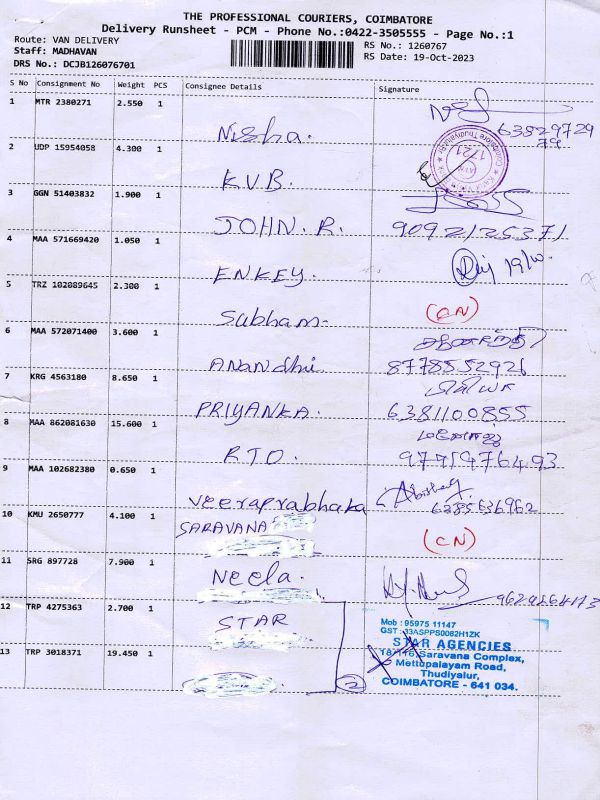 THE PROFESSIONAL COURIERS, COIMBATORE
Delivery Runsheet - PCM - Phone No.:0422-3505555 - Page No.:1
Route: VAN DELIVERY
RS No.: 1260767
Staff: MADHAVAN
RS Date: 19-Oct-2023
DRS No.: DCJB126076701
S No Consignment No Weight PCS Consignee Details Signature
1 MTR 2380271 2.550 1 Nisha. 6382972979
2 UDP 15954058 4.300 1 KVB. 1721
3 GGN 51403832 1.900 1 JOHN. R. 9092125371
4 MAA 571669420 1.050 1 ENKEY. 19/10
5 TRZ 102089645 2.300 1 Subham. (CN)
6 MAA 572071400 3.600 1 Anandhi. 8778552926
7 KRG 4563180 8.650 1 PRIYANKA. 6381100855
8 MAA 862081630 15.600 1 RTO.
9 MAA 102682380 0.650 1 veeraprabhaka 6385636962
10 KMU 2650777 4.100 1 SARAVANA (CN)
11 SRG 897728 7.900 1 Neela.
12 TRP 4275363 2.700 1 STAR
13 TRP 3018371 19.450 1 2
Mob : 95975 11147
GST : 33ASPPS0082H1ZK
STAR AGENCIES
18/116, Saravana Complex,
Mettupalayam Road,
Thudiyalur,
COIMBATORE - 641 034.